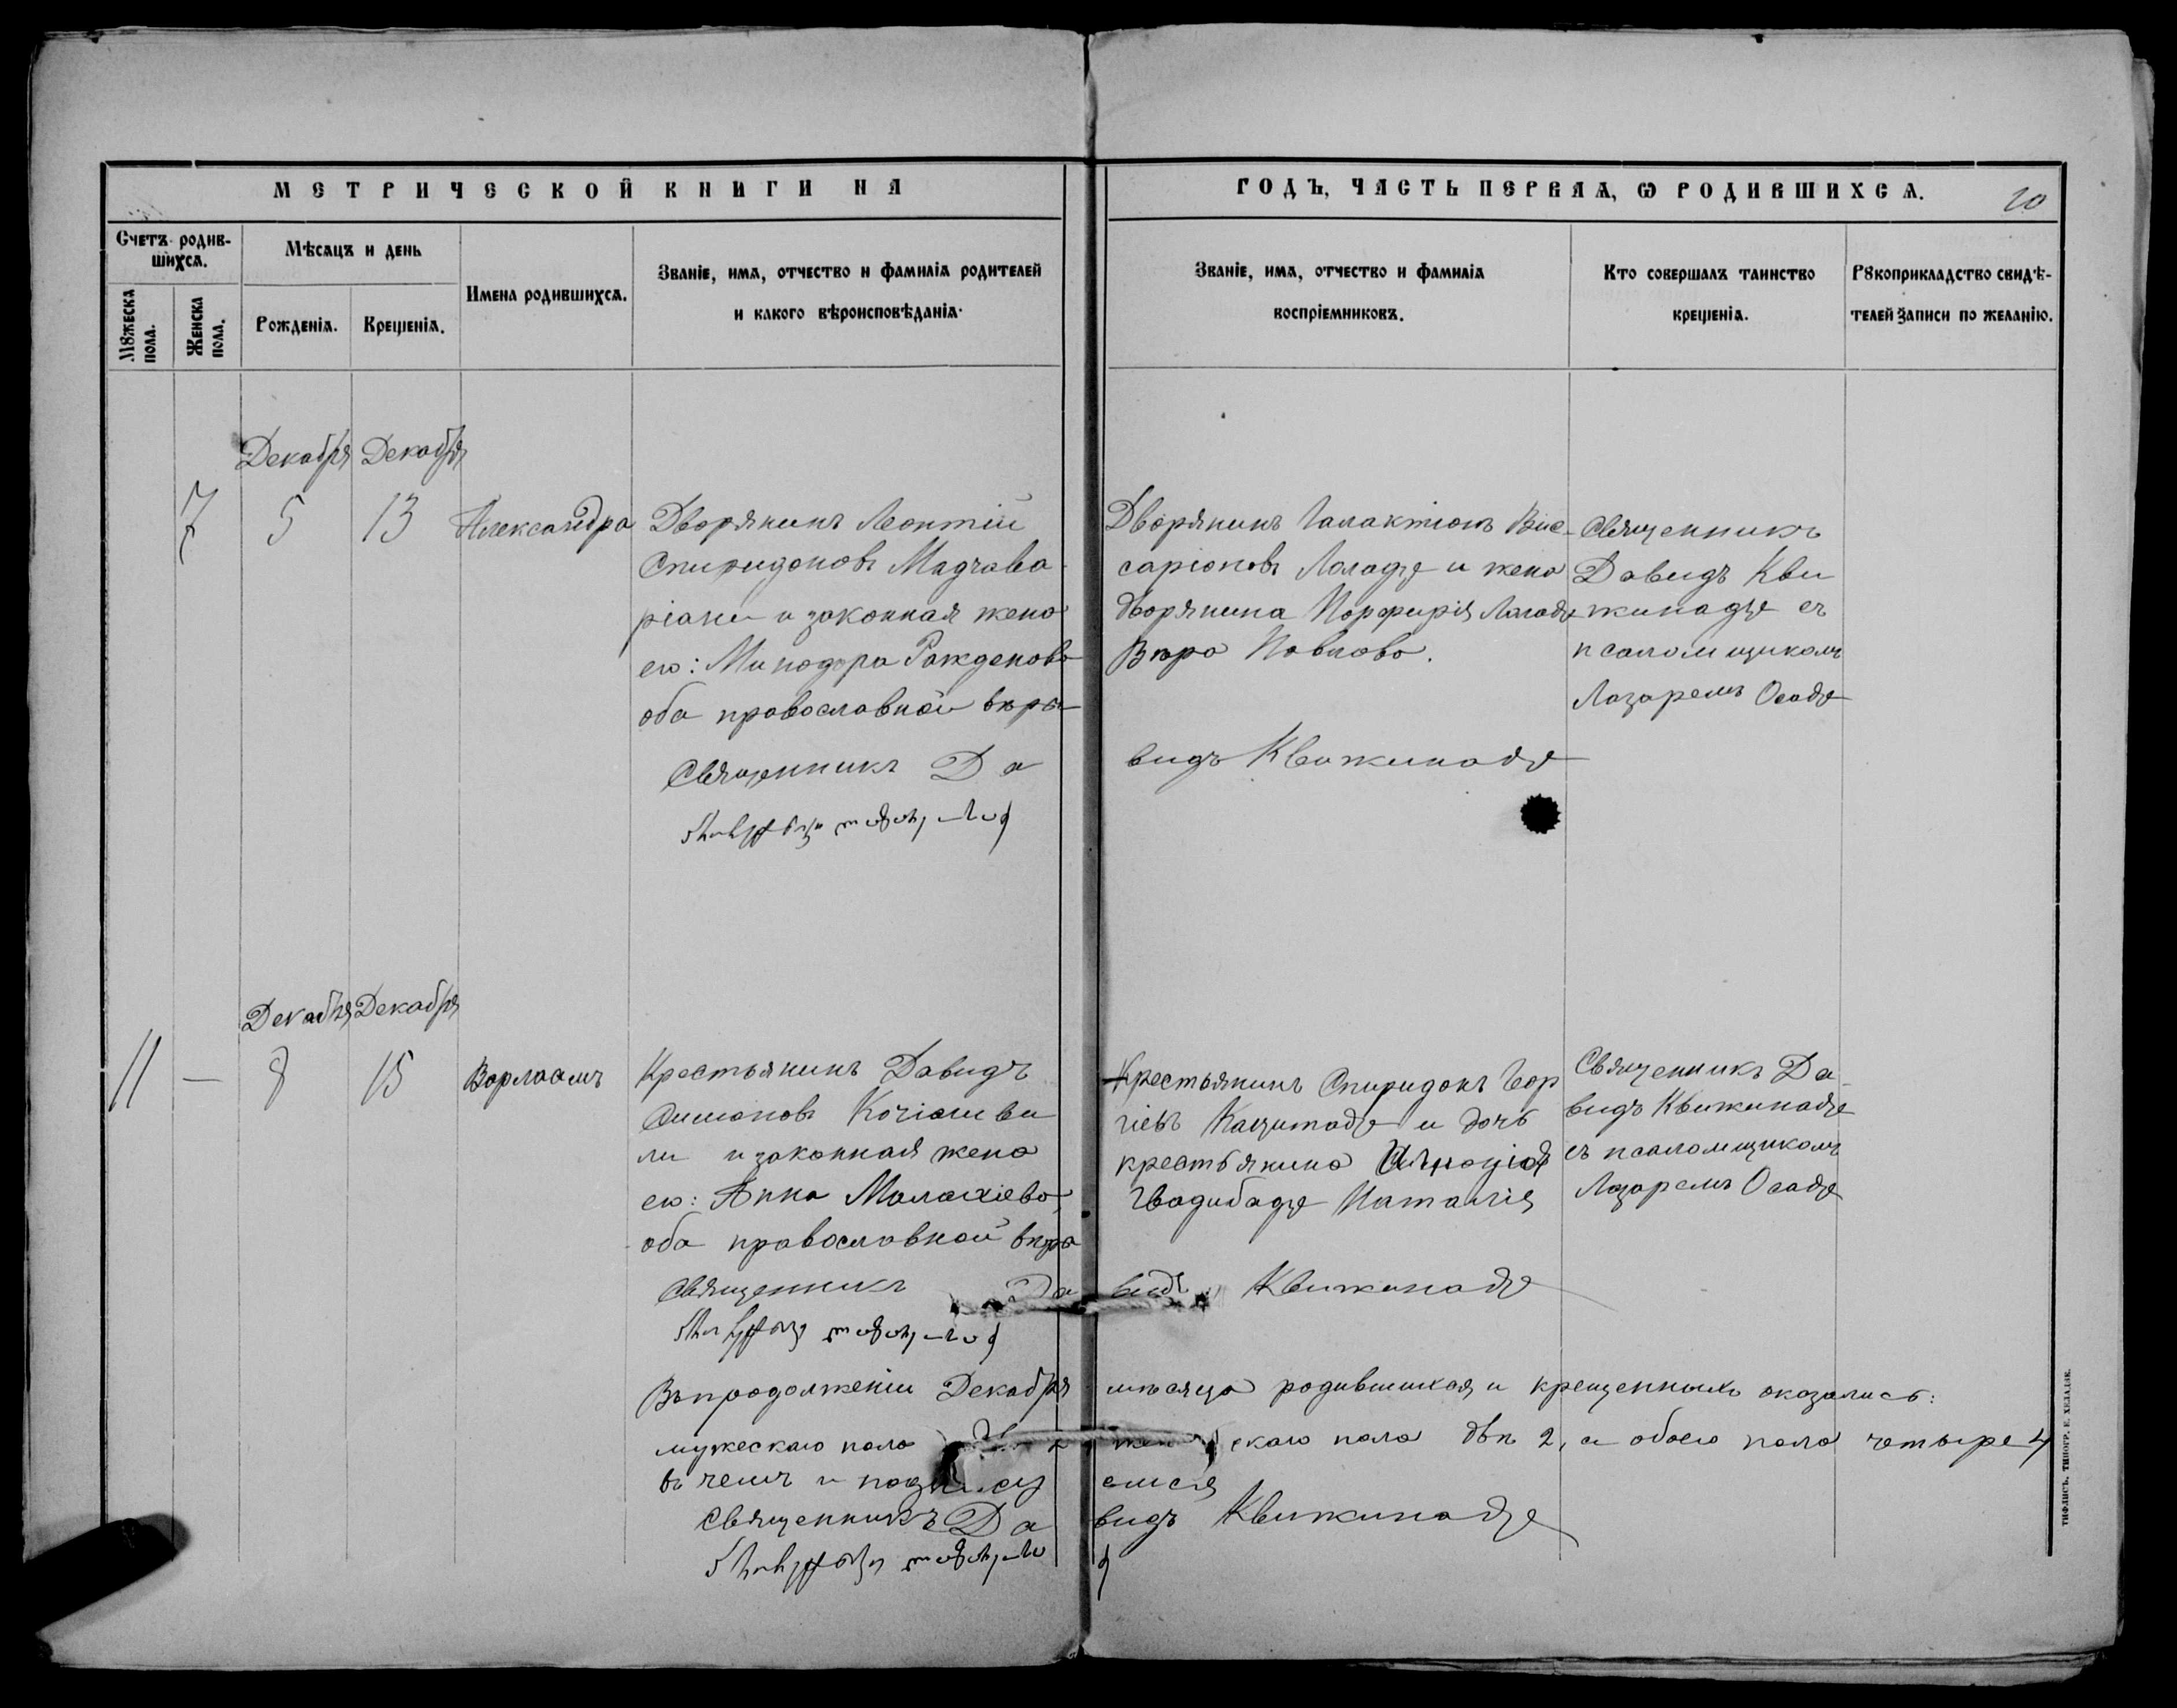 МЕТРИЧЕСКОЙ КНИГИ НА
ГОДЪ, ЧАСТЬ ПЕРВАЯ, Ѡ РОДИВШИХСѦ.
20
Счетъ родив-
шихсѧ.
Мѣсѧцъ и день
Имена родившихсѧ.
Званіе, имѧ, отчество и фамиліѧ родителей
и какого вѣроисповѣданіѧ.
Званіе, имѧ, отчество и фамиліѧ
воспріемниковъ.
Кто совершалъ таинство
крещеніѧ.
Рꙋкоприкладство свидѣ-
телей записи по желанію.
Мꙋжеска
пола.
Женска
пола.
Рожденіѧ.
Крещеніѧ.
Декабря Декабря
7 5 13 Александра
Дворянинъ Леонтій
Спиридоновъ Мадчава-
ріани и законная жена
его: Минодора Ражденова
оба православной вѣры
Дворянинъ Галактіонъ Вис-
саріоновъ Лагадзе и жена
дворянина Порфирія Лагадзе
Вѣра Павлова.
Священникъ
Давидъ Кви
жинадзе съ
псаломщикомъ
Лазаремъ Осадзе
Священникъ Давидъ Квижинадзе
Декабря Декабря
11 — 8 15 Варлаамъ
Крестьянинъ Давидъ
Симоновъ Кочіашви
ли и законная жена
его: Анна Малахіева,
оба православной вѣры
Крестьянинъ Спиридонъ Геор
гіевъ Кацитадзе и дочь
крестьянина
Гвадибадзе Наталія
Священникъ Да-
видъ Квижинадзе
съ псаломщикомъ
Лазаремъ Осадзе
Священникъ Давидъ Квижинадзе
Въ продолженіи Декабря мѣсяца родившихся и крещенныхъ оказались:
мужескаго пола женскаго пола двѣ 2, а обоего пола четыре 4
въ чемъ и подписуемся
Священникъ Давидъ Квижинадзе
ТИФЛИСЪ. ТИПОГР. Е. ХЕЛАДЗЕ.